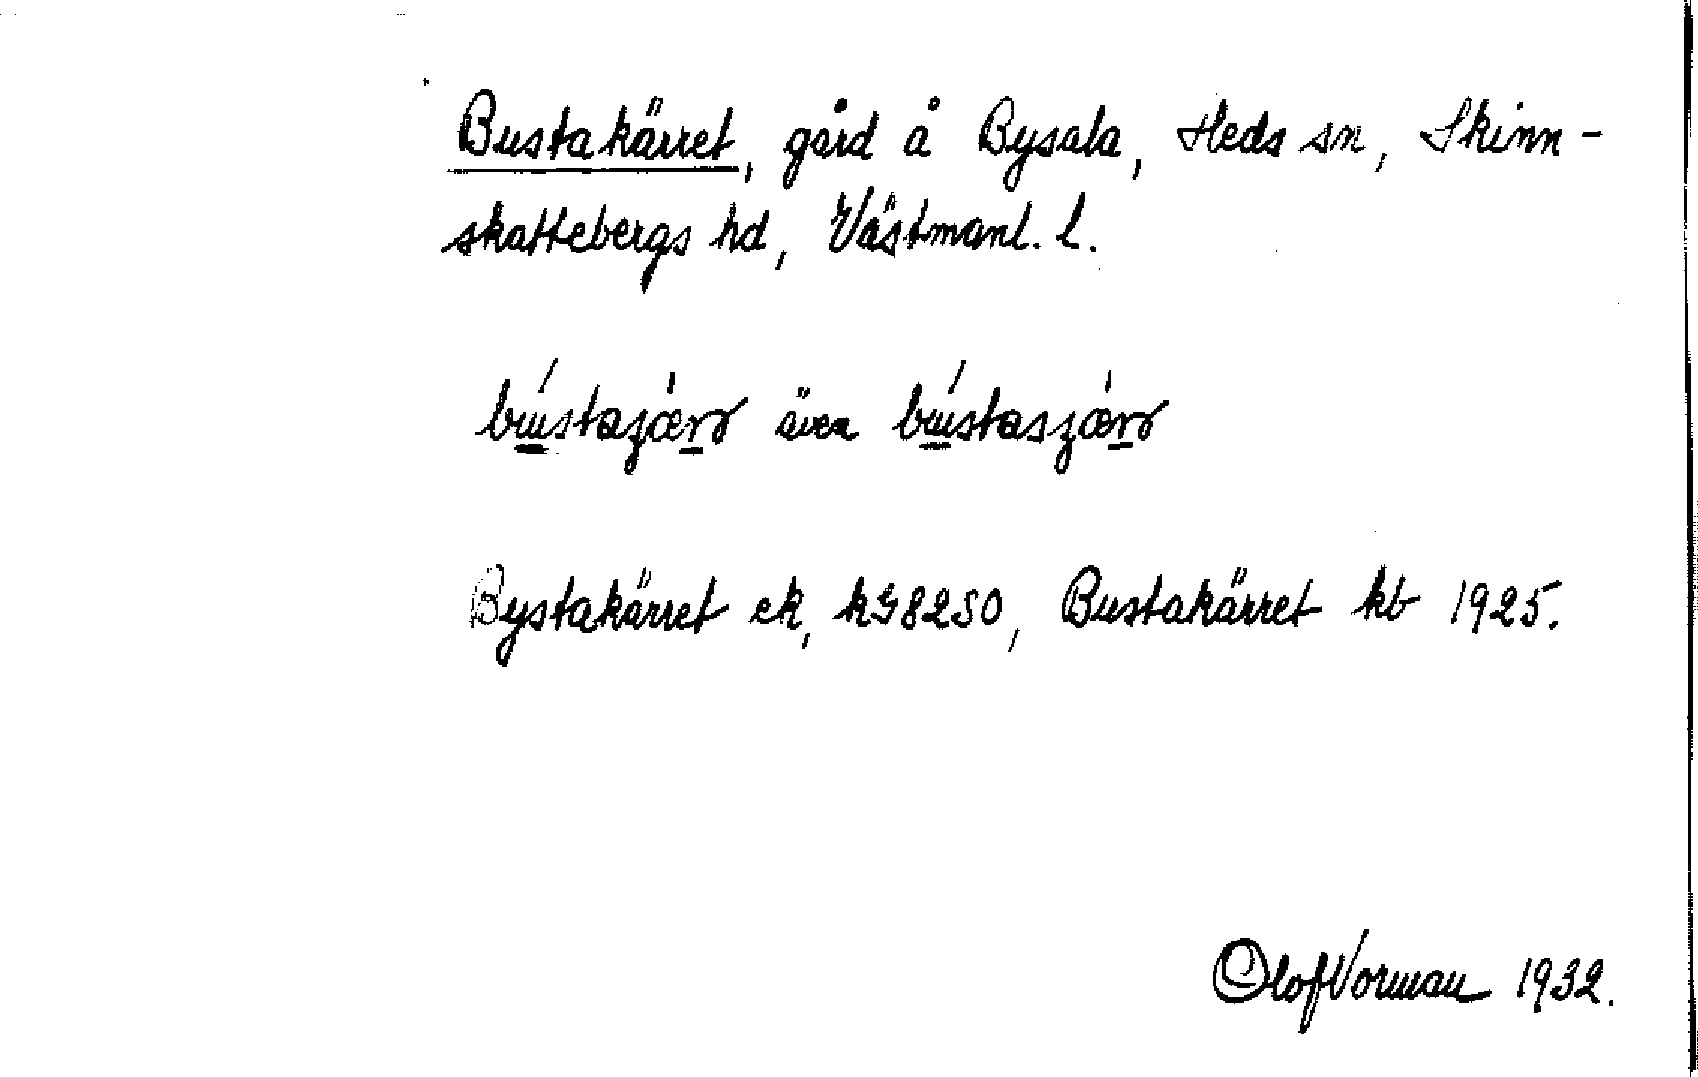 Bustakärret, gård å Bysala, Heds sn, Skinn-
skattebergs hd, Västmanl. l.
även
Bystakärret ek, kG8250, Bustakärret kb 1925.
Olof Vorman 1932.